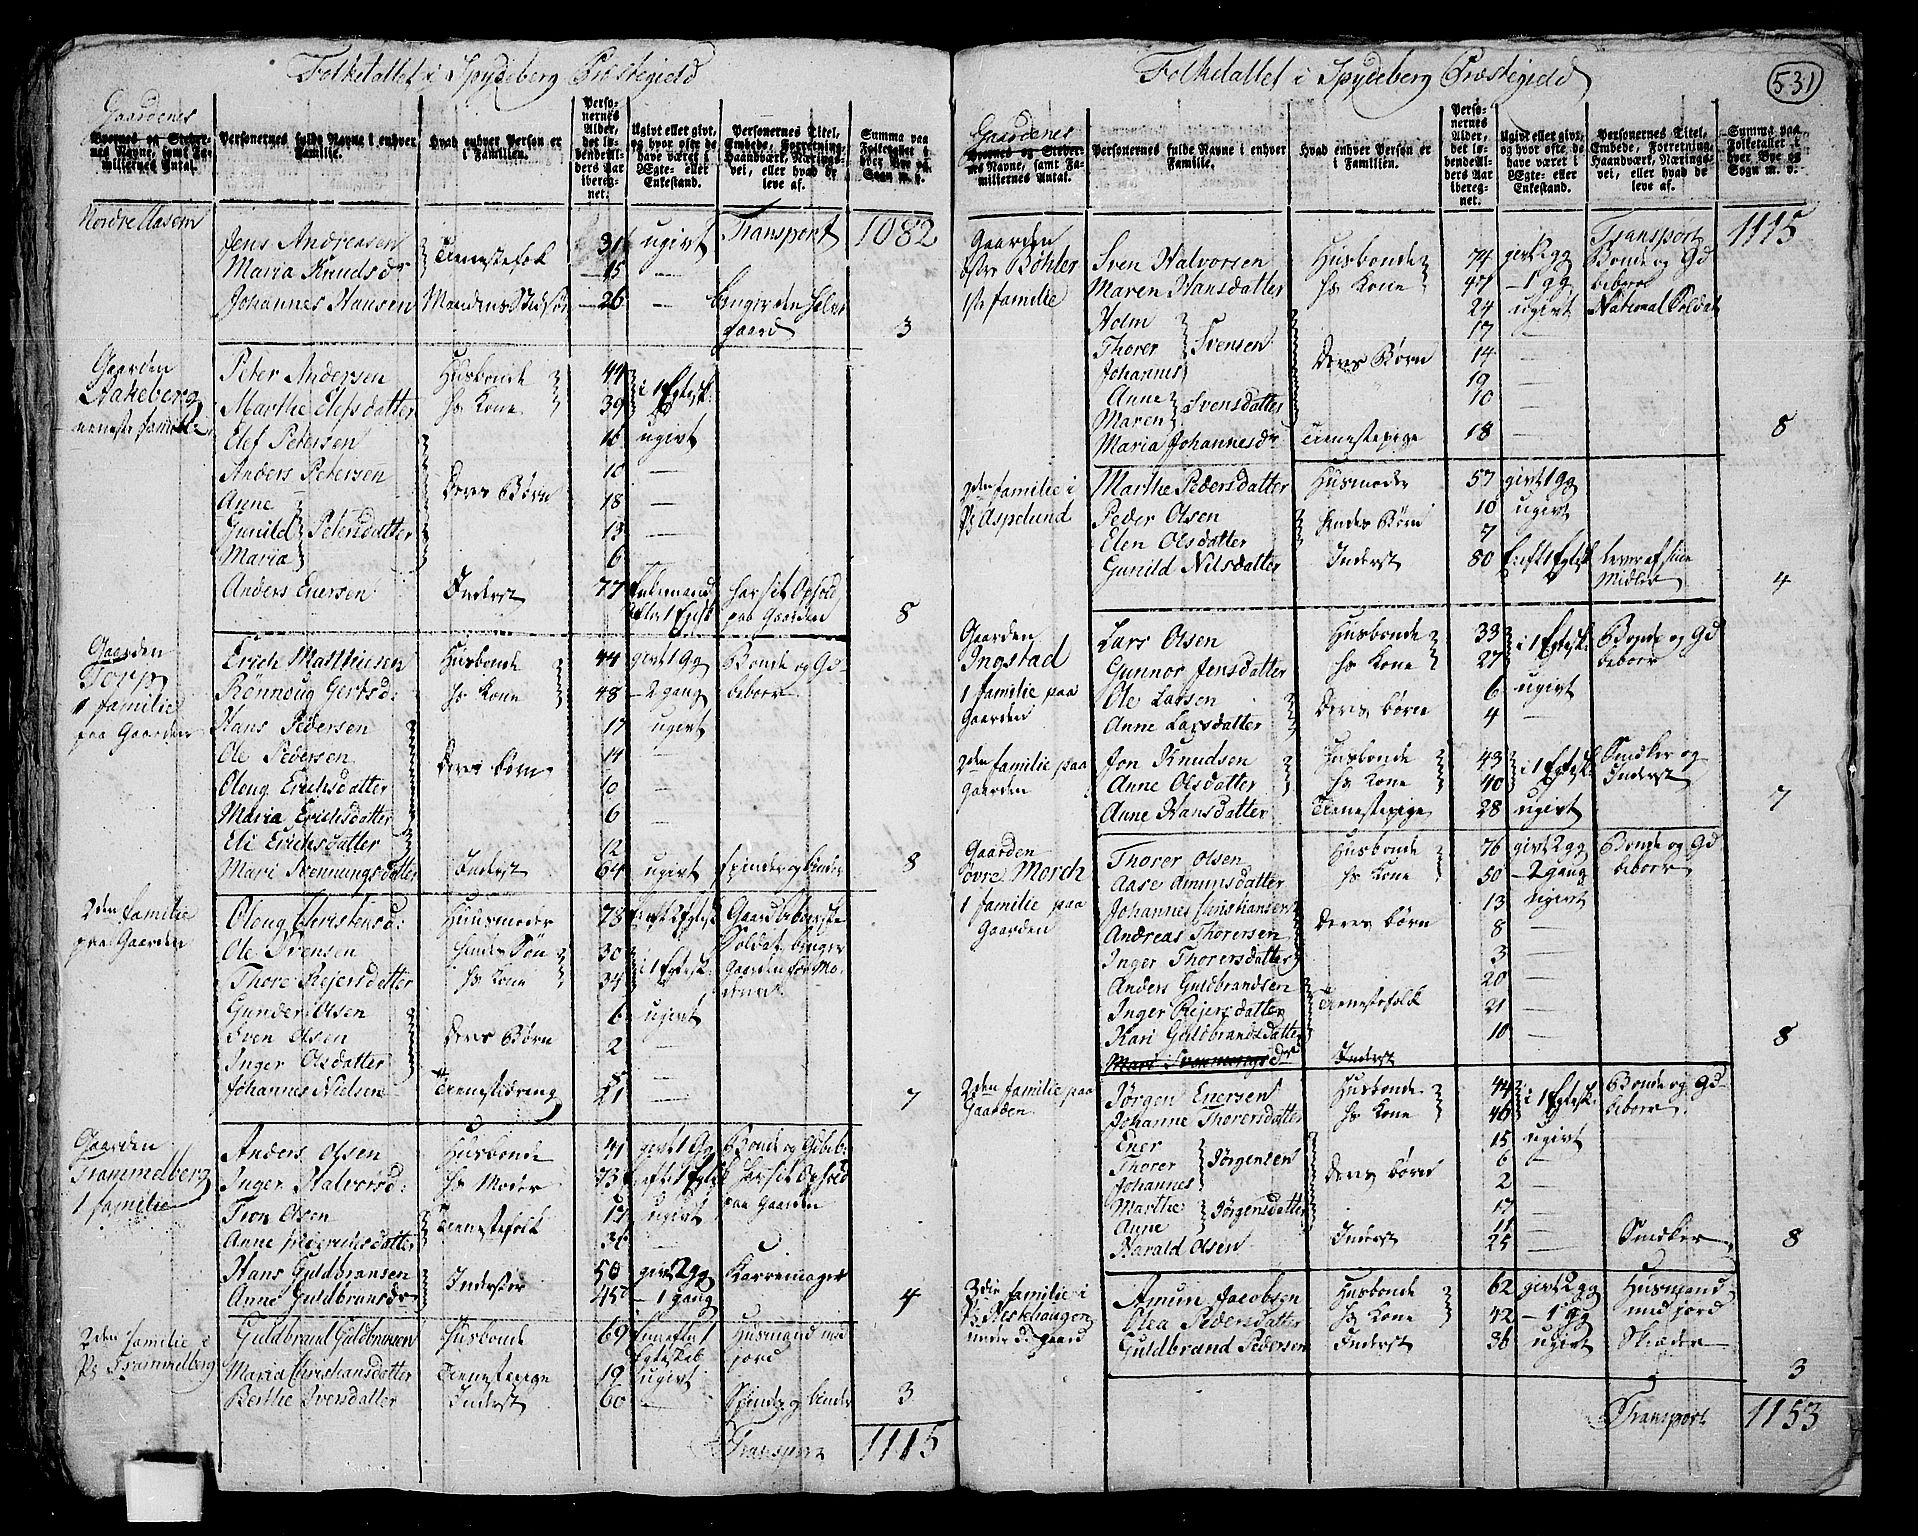 Folketallet i Spydeberg Præstegield
Gaardenes
Byernes og Stedernes Navne, samt Familiernes Antal.
Personernes fulde Navne i enhver Familie.
Hvad enhver Person er i Familien.
Personernes Alder, det løbende Alders Aar iberegnet.
Ugivt eller givt, og hvor ofte de have været i Ægte- eller Enkestand.
Personernes Titel, Embede, Forretning, Haandværk, Næringsvei, eller hvad de leve af.
Summa paa Folketallet i hver Bye og Sogn m. v.
Transport 1082
Nordre Aasem
Jens Andreasen Tienestefolk 31 ugivt
Maria Knudsdr 15 —
Johannes Hansen Mandens Stedsøn 26 —
gaard 3
Gaarden
eeneste familie
Peter Andersen Husbonde 44 i 1 Egtesk:
Marthe Elefsdatter hs Kone 39
Elef Petersen Deres Børn 16 ugivt
Anders Petersen 10 —
Anne 18 —
Gunild Petersdatter 13 —
Maria 6
Anders Enersen Inderst 77 Enkemand efter 1 Egt har sit Ophold paa Gaarden 8
Gaarden
Torp
1 familie
paa Gaarden
Erich Matthiesen Husbonde 44 givt 1 Gg Bonde og Gd
Rønnoug Gertsd: hs Kone 48 — 2 gang beboer
Hans Pedersen 17 ugivt
Ole Pedersen Deres børn 14 —
Oloug Erichsdatter 10 —
Maria Erichsdatter 6 —
Eli Erichsdatter 12
Mari Svennungsdatter Inderst 64 ugivt spinder og binder 8
2den familie
paa Gaarden
Oloug Christensd: Huusmoder 78 Gaardbeboerske
Ole Svensen hendes Søn 30 i 1 Egtesk: Soldat
Thore Rejersdatter hs Kone 34
Gunder Olsen 6 ugivt
Sven Olsen Deres Børn 2 —
Inger Olsdatter
Johannes Nielsen Tienestedreng 21 — 7
Gaarden
Trammelberg
1 familie
Anders Olsen Husbonde 41 givt 1 Gg Bonde og Gdbeb:
Inger Halvorsd: hs Moder 73 har sit Ophold
Tron Olsen Tienestefolk 17 ugivt paa Gaarden
Anne friderichsdatter —
Hans Guldbransen Inderster 50 givt 2 gg
Anne Guldbransdr 45 — 1 gang 4
2den familie i
Ps Trammelberg
Guldbrand Guldbransen Husbonde 69 Husmand med
Egteskab jord
Maria Christiansdatter Tienestepige 19 ugivt
Berthe Iversdatter Inderst 60 — Spinder og binder 3
Transport 1115
Folketallet i Spydeberg Præstegield
531
Gaardenes
Byernes og Stedernes Navne, samt Familiernes Antal.
Personernes fulde Navne i enhver Familie.
Hvad enhver Person er i Familien.
Personernes Alder, det løbende Alders Aar iberegnet.
Ugivt eller givt, og hvor ofte de have været i Ægte- eller Enkestand.
Personernes Titel, Embede, Forretning, Haandværk, Næringsvei, eller hvad de leve af.
Summa paa Folketallet i hver Bye og Sogn m. v.
Transport 1115
Gaarden
Bøhler
1ste familie
Sven Halvorsen Husbonde 74 givt 2 gg Bonde og Gd
Maren Hansdatter hs Kone 47 — 1 gg beboer
Holm 24 ugivt National Soldat
Thorer Svensen 17
Johannes Deres Børn 14 —
Anne 19 —
Maren Svensdatter 10 —
Maria Johannesdr Tienestepige 18 — 8
2den familie i
Ps Aspelund
Marthe Pedersdatter Husmoder 57 givt 1 gg
Peder Olsen hendes Børn 10 ugivt
Elen Olsdatter 7
Gunild Nilsdatter Inderst 80 lever af sine
Midler 4
Gaarden
Ingstad
1 familie paa
Gaarden
Lars Olsen Husbonde 33 i 1 Egtesk: Bonde og Gd
Gunnor Jensdatter hs Kone 27 beboer
Ole Larsen Deres børn 6 ugivt
Anne Larsdatter 4 —
2den familie paa
Gaarden
Jon Knudsen Husbonde 43 i 1 Egtesk: Snedker og
Anne Olsdatter hs Kone 40 Inderst
Anne Hansdatter Tienestepige 28 ugivt 7
Gaarden
øvre Morch
1 familie paa
Gaarden
Thorer Olsen Husbonde 76 givt 2 gg Bonde og Gd
Aase Amunsdatter hs Kone 50 — 2 gang beboer
Johannes Christiansen 13 ugivt
Andreas Thorersen Deres børn 8 —
Inger Thorersdatter 3 —
Anders Guldbrandsen 20 —
Inger Rejersdatter Tienestefolk 21 —
Kari Guldbrandsdatter 10 — 8
Mari Svennungsdr Inderst
2den familie paa
Gaarden
Jørgen Enersen Husbonde 44 i 1 Egtesk: Bonde og Gd
Johanne Thorersdatter hs Kone 46 beboer
Ener 15 ugivt
Thorer Jørgensen 6 —
Johannes Deres børn 2 —
Marthe 17 —
Anne Jørgensdatter 11 —
Harald Olsen Inderst 25 — Snedker 8
3die familie i
under do gaard
Amun Jacobsen Husbonde 62 givt 2 gg Husmand
Olea Pedersdatter hs Kone 42 — 1 gg med jord
Guldbrand Pedersen Inderst 36 ugivt Skræder
3
Transport 1153